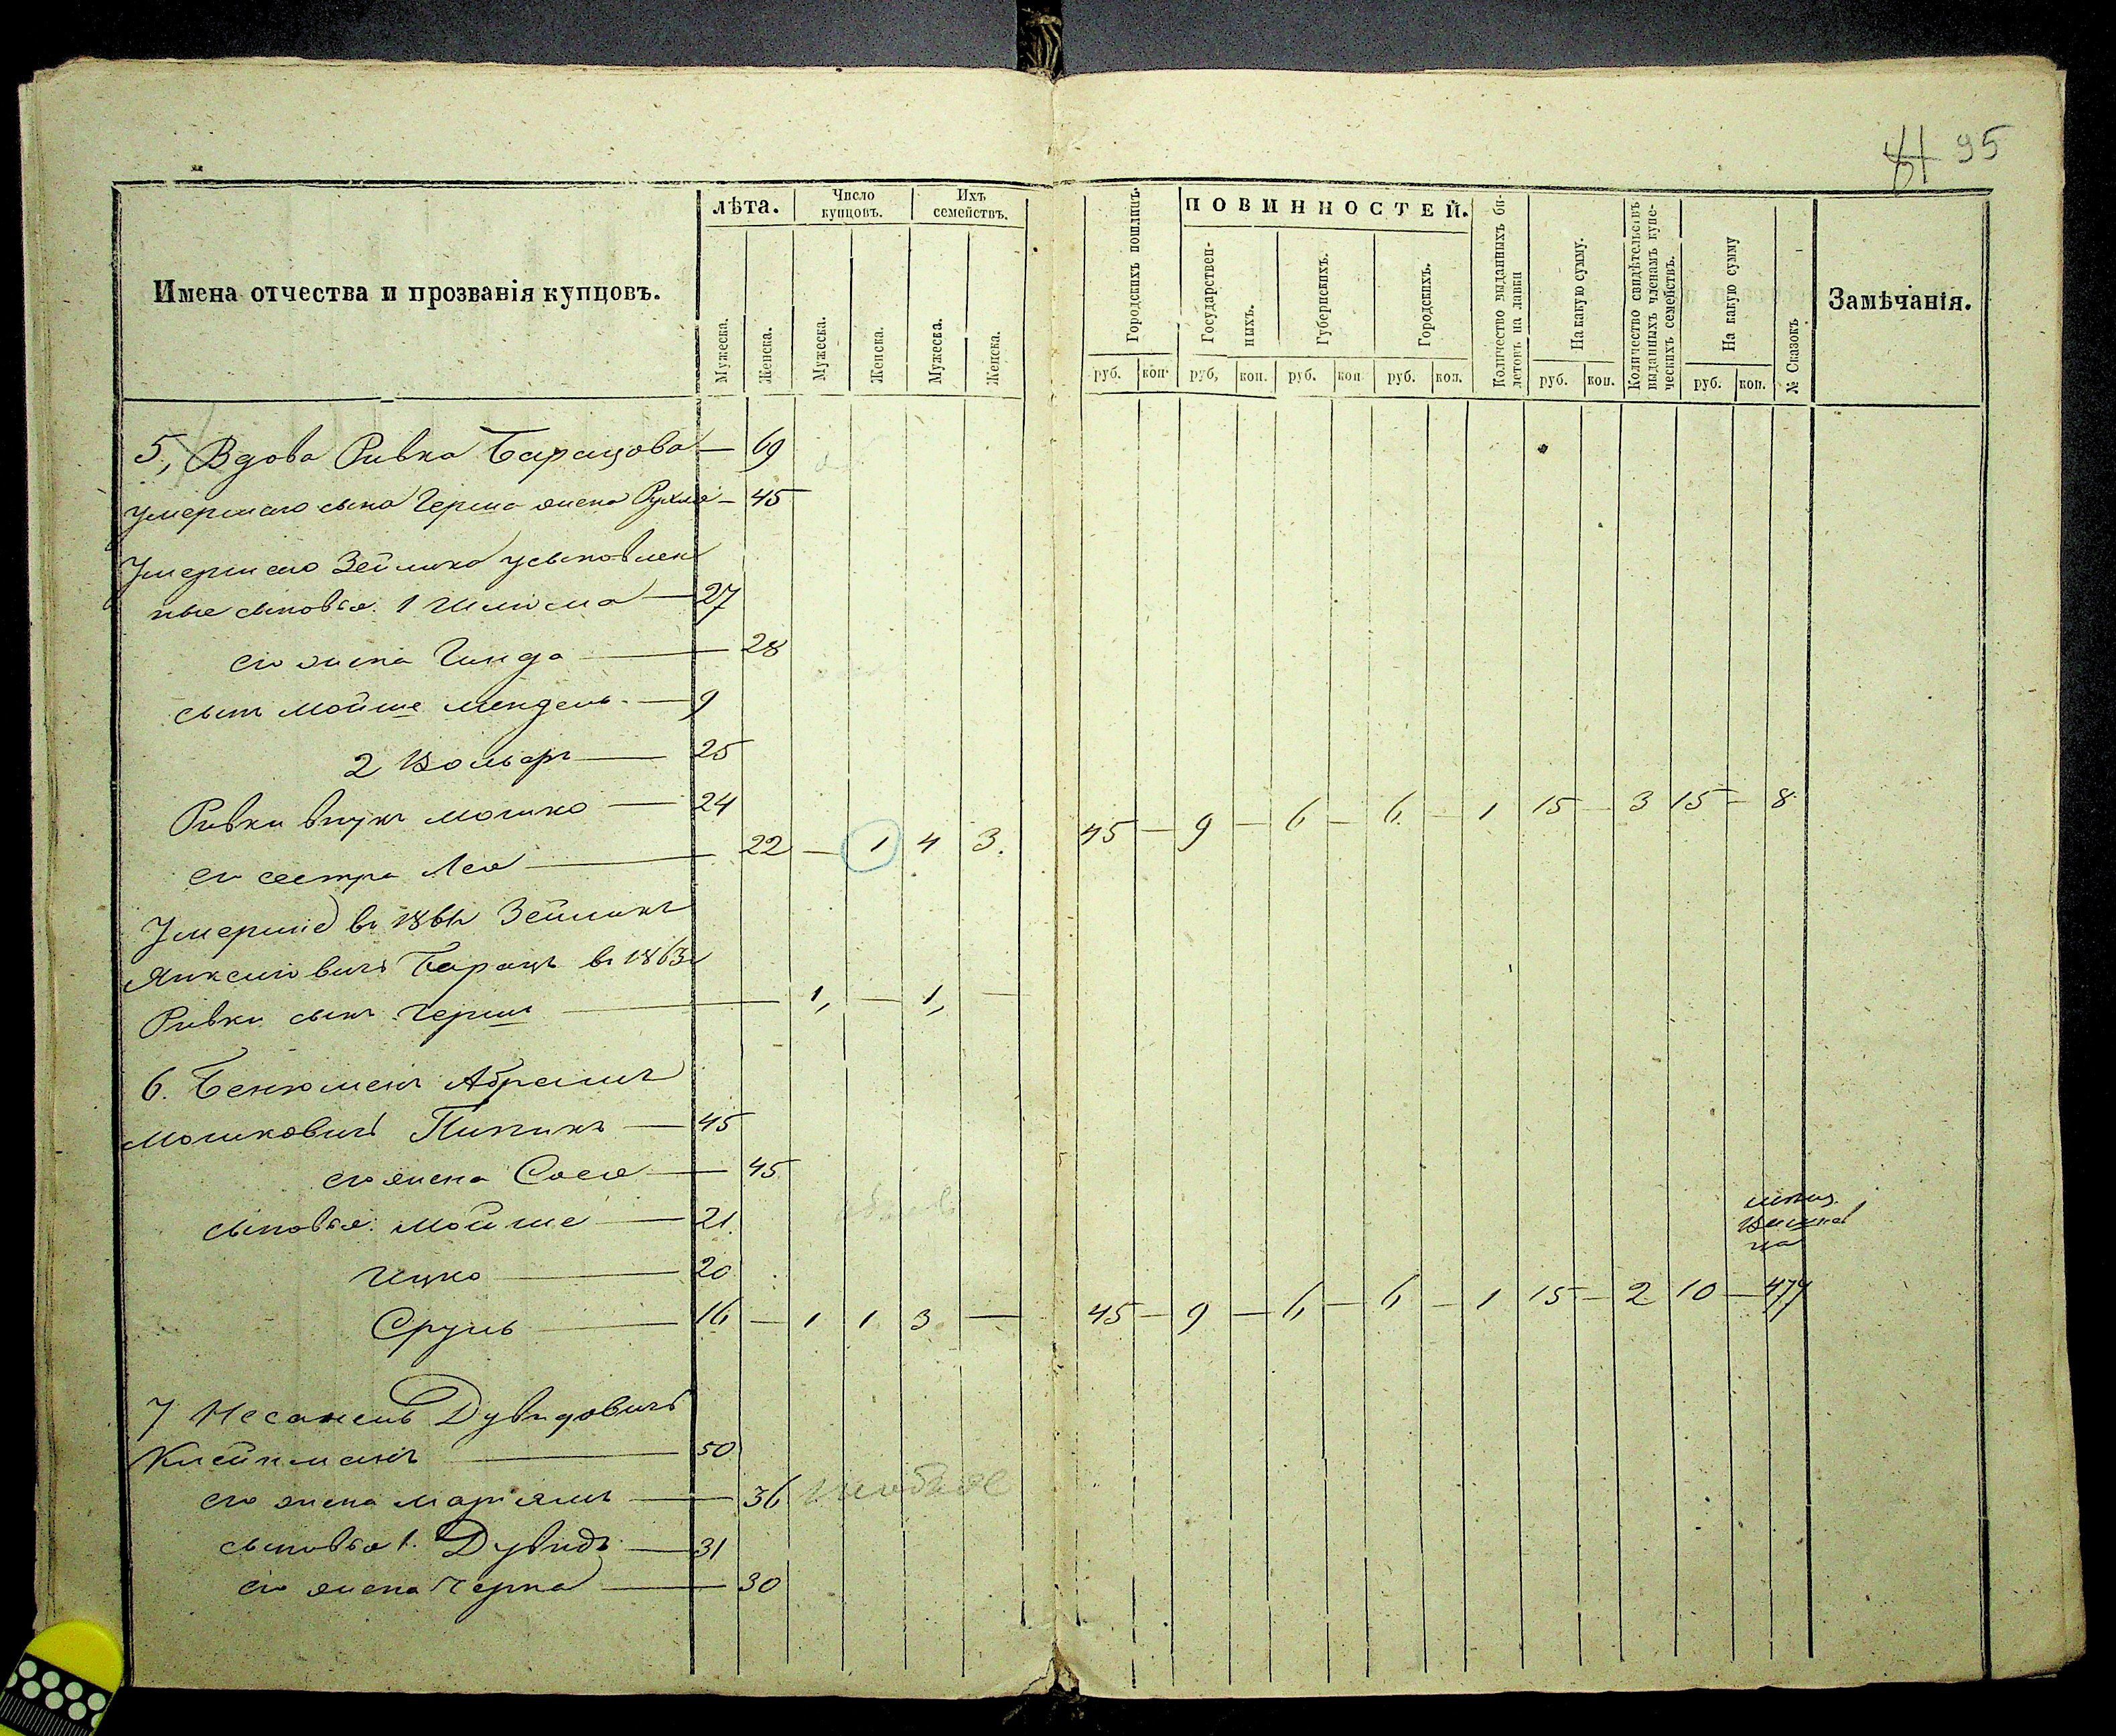 95
Имена отчества и прозванія купцовъ.
лѣта.
Число купцовъ.
Ихъ семействъ.
Мужеска.
Женска.
Мужеска.
Женска.
Мужеска.
Женска.
Городскихъ пошлинъ.
ПОВИННОСТЕЙ.
Государственныхъ.
Губернскихъ.
Городскихъ.
Количество выданныхъ билетовъ на лавки
На какую сумму.
Количество свидѣтельствъ выданныхъ членамъ купеческихъ семействъ.
На какую сумму
№ Сказокъ
Замѣчанія.
руб. коп. руб, коп. руб. коп руб. коп. руб. коп. руб. коп.
5, Вдова Ривка Барацова — 69
Умершаго сына Герша жена Рухля — 45
Умершаго Зейлика усыновлен
ные сыновья: 1 Шлиома — 27
его жена Гинда — 28
сынъ Мойше Мендель. — 9
2 Вольфъ — 25
Ривки внукъ Мошко — 24
его сестра Лея — 22 — 1 4 3. 45 — 9 — 6 — 6 — 1 15 — 3 15 — 8
Умершіе въ 1861 Зейликъ
Янкелиовичъ Барацъ въ 1863
Ривки сынъ Герш — 1, — 1, —
6. Бенюменъ Абрамъ
Мошковичъ Пипикъ — 45
его жена Сося — 45
сыновья: Мойше — 21.
Ицко — 20
Сруль — 16 — 1 1 3 — 45 — 9 — 6 — 6 — 1 15 — 2 10 — 477
7 Несанель Дувидовичъ
Клейнманъ — 50
его жена Маріямъ — 36
сыновья 1. Дувидъ — 31
его жена Черна — 30